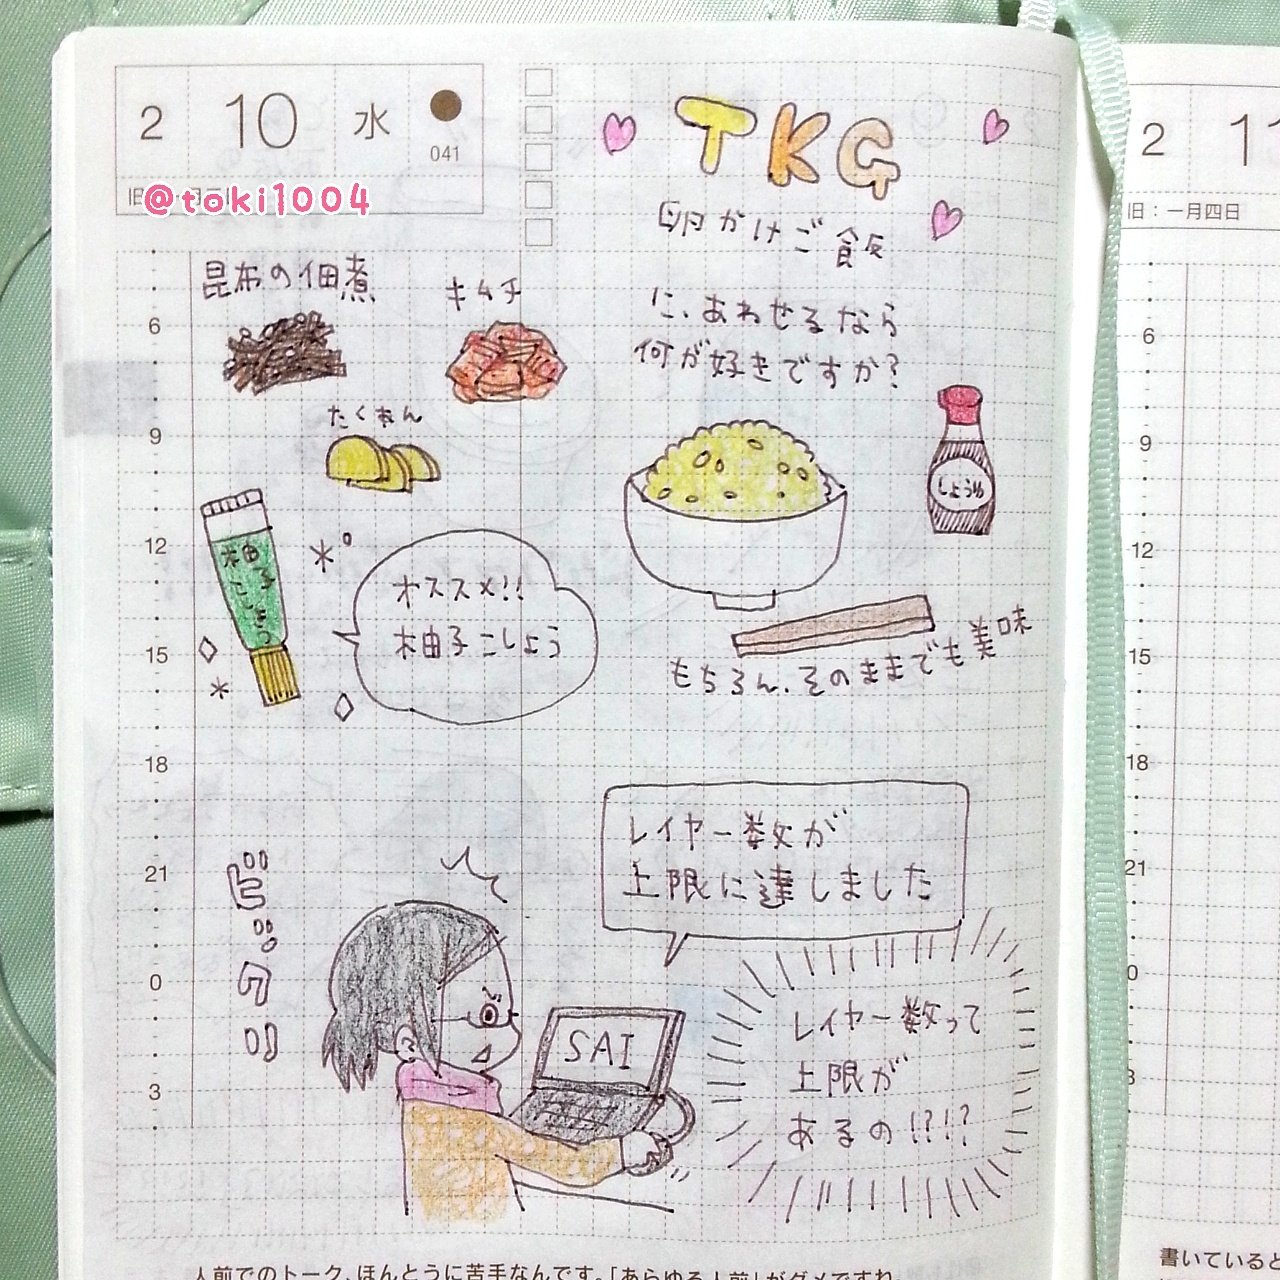 2 10 水
041
@toki1004
TKG
卵かけご飯
に、あわせるなら
何が好きですか?
昆布の佃煮
キムチ
たくあん
しょうゆ
オススメ!!
柚子こしょう
もちろん、そのままでも美味
6
9
12
15
18
21
0
3
レイヤー数が
上限に達しました
ビックリ
SAI
レイヤー数って
上限が
あるの!?!?
人前でのトーク、ほんとうに苦手なんです。「あらゆる人前」がダメですね
2 11
旧:一月四日
6
9
12
15
18
21
0
3
書いていると